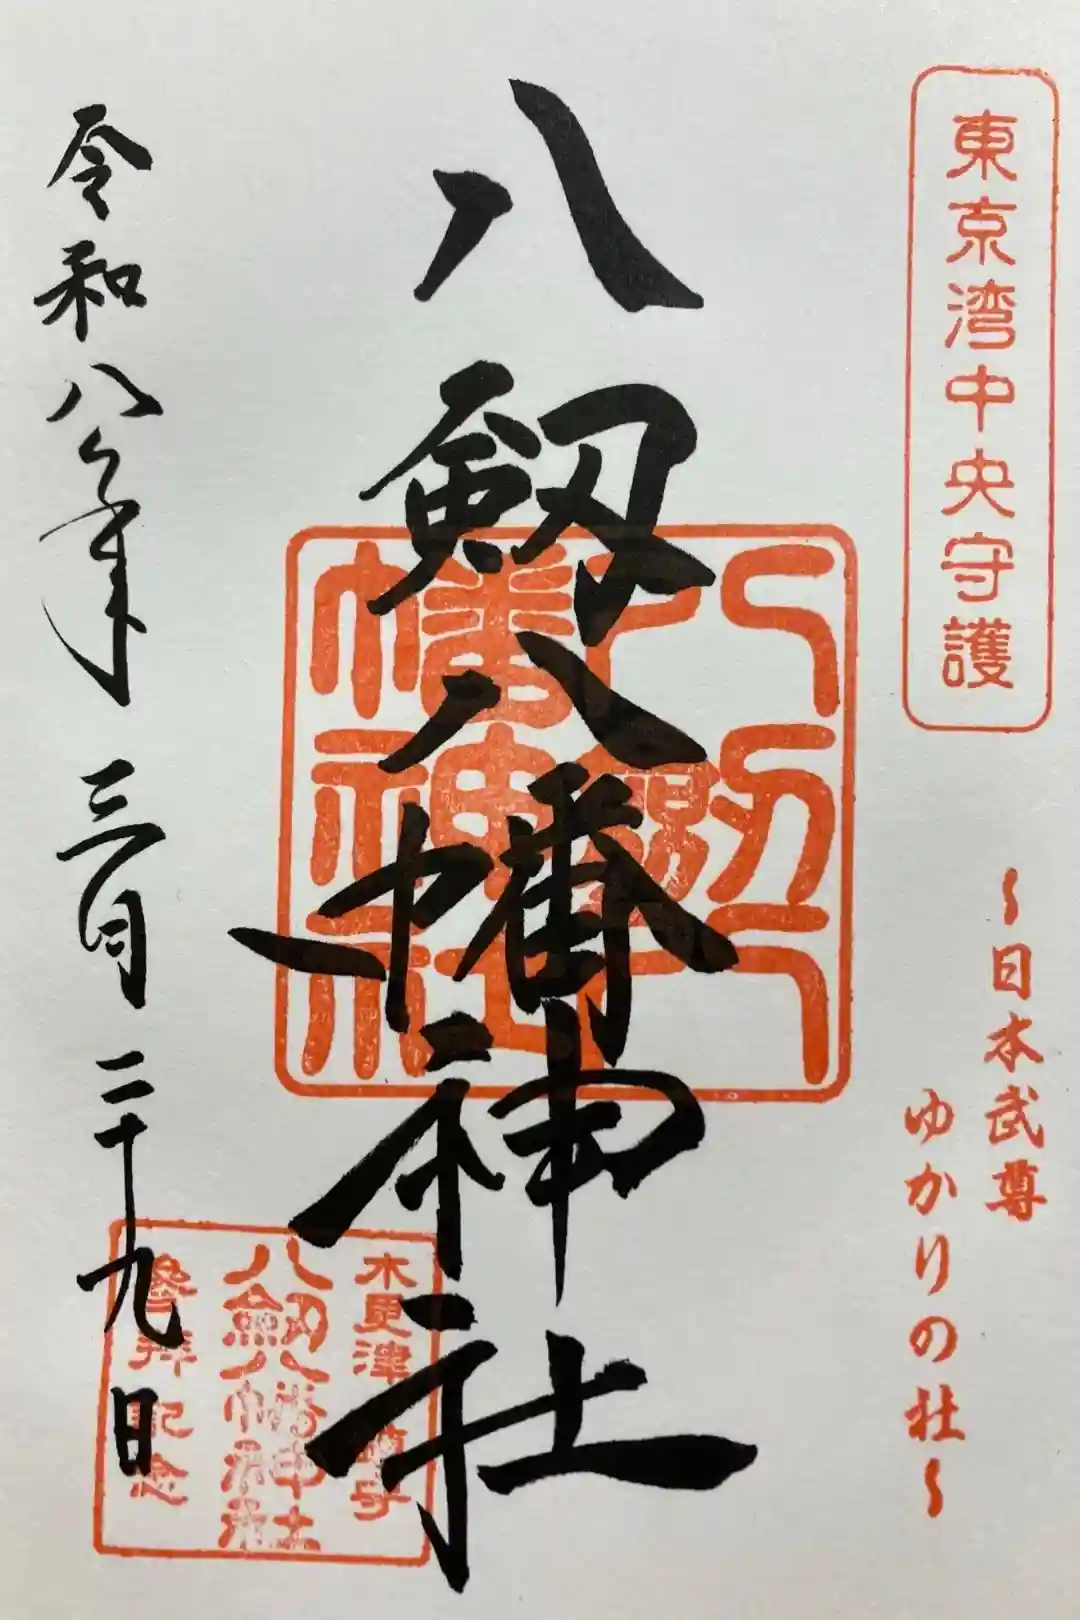 東京湾中央守護
〜日本武尊
ゆかりの社〜
八剱八幡神社
八剱八幡神社
木更津 鎮守
八剱八幡神社
参拝記念
令和八年 三月 二十九日